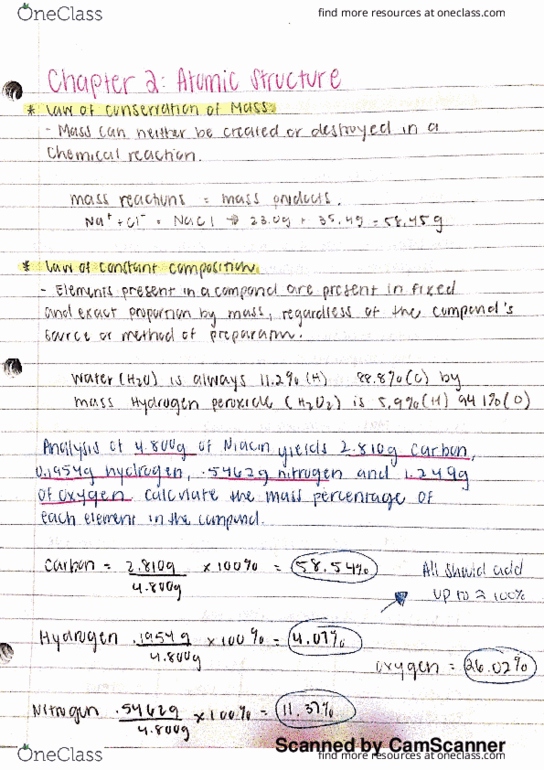 OneClass
find more resources at oneclass.com
Chapter 2: Atomic Structure
* Law of conservation of Mass
- Mass can neither be created or destroyed in a
Chemical reaction.
mass reactions = mass products.
Na⁺ + Cl⁻ = NaCl → 23.0g + 35.49 = 58.45g
* law of constant composition
- Elements present in a compond are present in fixed
and exact proportion by mass, regardless of the compond's
source or method of preparation.
Water (H₂O) is always 11.2% (H) 88.8% (O) by
mass Hydrogen peroxide (H₂O₂) is 5.9% (H) 94.1% (O)
Analysis of 4.800g of Niacin yields 2.810g carbon,
0.1954g hydrogen, .5462g nitrogen and 1.249g
of oxygen calculate the mass percentage of
each element in the compund.
Carbon = 2.810g / 4.800g × 100% = 58.54%
All should add
up to ≈ 100%
Hydrogen .1954g / 4.800g × 100% = 4.07%
oxygen = 26.02%
Nitrogen .5462g / 4.800g × 100% = 11.37%
OneClass
Scanned by CamScanner
find more resources at oneclass.com